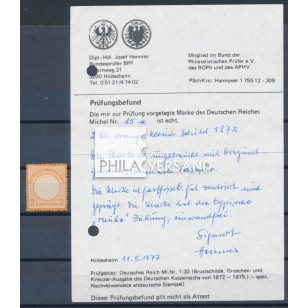 Dipl.-Hdl. Josef Hennies
Bundesprüfer BPP
weg 21
Hildesheim
Tel. 0 51 21/4 74 02
Mitglied im Bund der
Philatelistischen Prüfer e. V.
des BDPh und des APHV
PSchKto: Hannover 1 755 12 - 309
Prüfungsbefund
Die mir zur Prüfung vorgelegte Marke des Deutschen Reiches
Michel Nr. 15 ist echt.
2 Kr. orange, kleiner Schild 1872
Die Marke ist ungebraucht mit Original
PHILA VERSAND
Die Marke ist farbfrisch,
geprägt. Die Marke hat die typische
"rauhe" Zähnung, einwandfrei.
Signiert
Hennies
Hildesheim 11.5.1977
Prüfgebiet: Deutsches Reich Mi.Nr. 1-30 (Brustschilde, Groschen- und
Kreuzer-Nachverwendung des Deutschen Kaiserreichs von 1872 – 1875), – spez.
Dieser Prüfungsbefund gilt nicht als Attest